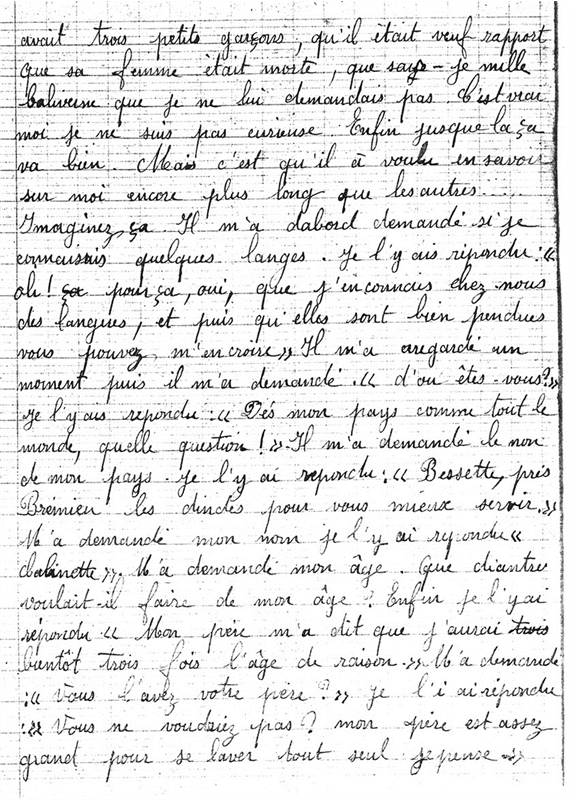 avait trois petits garçons, qu'il était veuf rapport
que sa femme était morte, que says-je mille
baliverne que je ne lui demandais pas. C'est vrai
moi je ne suis pas curieuse. Enfin jusque la ça
va bien. Mais c'est qu'il à voulu en savoir
sur moi encore plus long que les autres.....
Imaginez ça. Il m'a dabord demandé si je
connaissais quelques langes. Je l'y ais répondu :«
oh! ça pour ça, oui, que j'en connais chez nous
des langues, et puis qu'elles sont bien pendues
vous pouvez m'en croire» Il m'a aregardé un
moment puis il m'a demandé .« d'ou êtes-vous?»
Je l'y ais repondu :« Dés mon pays comme tout le
monde, quelle question!» Il m'a demandé le non
de mon pays. Je l'y ai repondu :« Bessette, prés
Brémieu les dindes pour vous mieux servir.»
M'a demandé mon nom je l'y ai repondu «
Cabinette», M'a demandé mon âge. Que diantre
voulait-il faire de mon âge? Enfin je l'y ai
répondu « Mon père m'a dit que j'aurai trois
bientôt trois fois l'âge de raison.» M'a demandé
:« Vous l'avez votre père?» Je l'i ai répondu
:« Vous ne voudriez pas? mon père est assez
grand pour se laver tout seul je pense -»